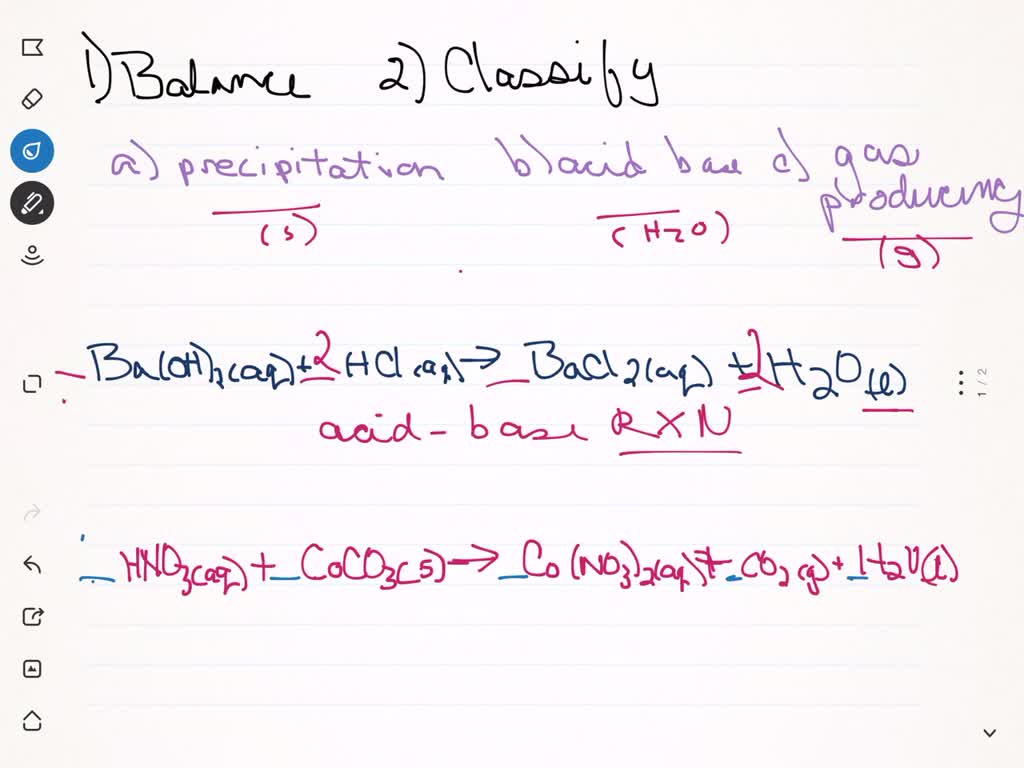 1) Balance 2) Classify
a) precipitation b) acid base c) gas producing
(s) (H2O) (g)
_ Ba(OH)2(aq) + 2 HCl(aq) → _ BaCl2(aq) + 2 H2O(l)
acid-base RXN
_ HNO3(aq) + _ CoCO3(s) → _ Co(NO3)2(aq) + _ CO2(g) + _ H2O(l)
1/2